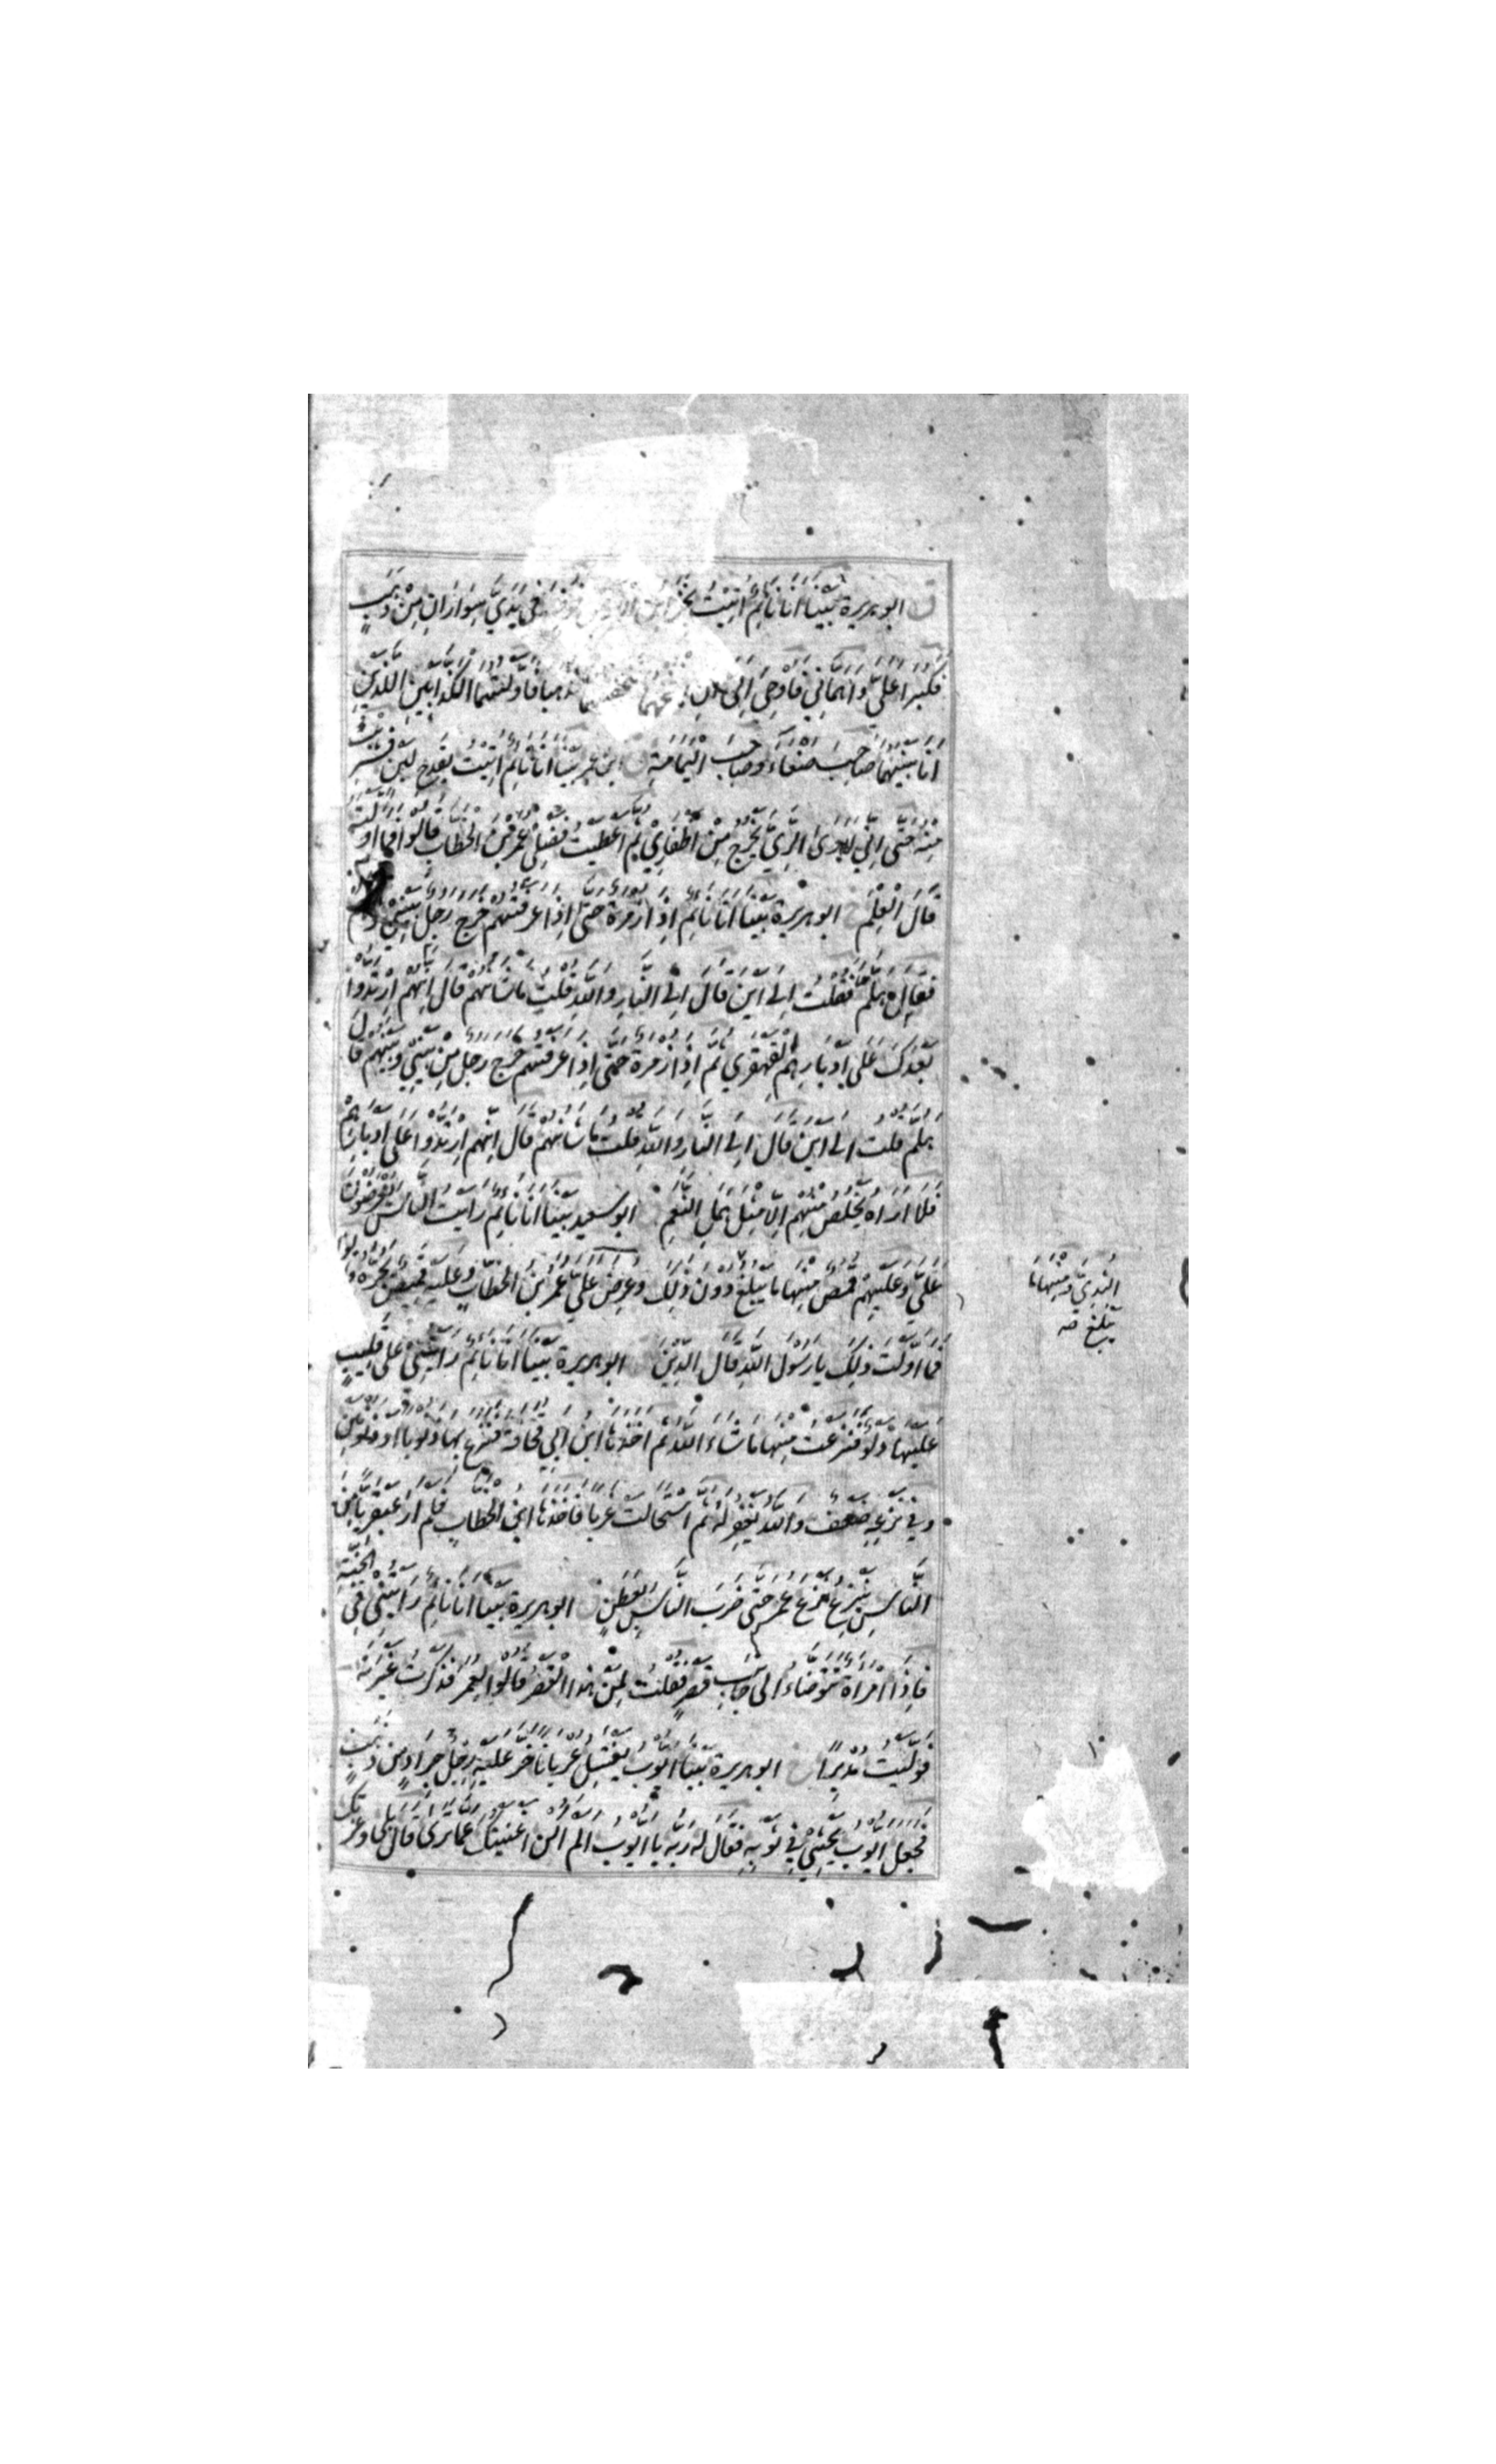 ق ابو هريرة بَيْنَا اَنَا نَائِمٌ اُتِيْتُ بِخَزَائِنِ الارض فوضع فِي يَدَيَّ سِوَارَانِ مِنْ ذَهَبٍ
فَكَبُرَا عَلَيَّ وَاَهَمَّانِي فَاُوحِيَ اِلَيَّ اَنِ انفخهما فنفختهما فذهبا فَاَوَّلْتُهُمَا الْكَذَّابَيْنِ اللَّذَيْنِ
اَنَا بَيْنَهُمَا صَاحِبَ صَنْعَاءَ وَصَاحِبَ الْيَمَامَةِ ق ابن عمر بَيْنَا اَنَا نَائِمٌ اُتِيْتُ بِقَدَحِ لَبَنٍ فَشَرِبْتُ
مِنْهُ حَتّٰى اِنِّي لَاَرَى الرِّيَّ يَخْرُجُ مِنْ اَظْفَارِي ثُمَّ اَعْطَيْتُ فَضْلِي عُمَرَ بْنَ الْخَطَّابِ قَالُوا فَمَا اَوَّلْتَهُ
قَالَ الْعِلْمَ خ ابو هريرة بَيْنَا اَنَا نَائِمٌ اِذَا زُمْرَةٌ حَتّٰى اِذَا عَرَفْتُهُمْ خَرَجَ رَجُلٌ بَيْنِي وَبَيْنِهِمْ
فَقَالَ هَلُمَّ فَقُلْتُ اِلٰى اَيْنَ قَالَ اِلَى النَّارِ وَاللّٰهِ قُلْتُ مَا شَأْنُهُمْ قَالَ اِنَّهُمْ ارْتَدُّوا
بَعْدَكَ عَلٰى اَدْبَارِهِمُ الْقَهْقَرٰي ثُمَّ اِذَا زُمْرَةٌ حَتّٰى اِذَا عَرَفْتُهُمْ خَرَجَ رَجُلٌ مِنْ بَيْنِي وَبَيْنِهِمْ فَقَالَ
هَلُمَّ قُلْتُ اِلٰى اَيْنَ قَالَ اِلَى النَّارِ وَاللّٰهِ قُلْتُ مَا شَأْنُهُمْ قَالَ اِنَّهُمُ ارْتَدُّوا عَلٰى اَدْبَارِهِمْ
فَلَا اَرَاهُ يَخْلُصُ مِنْهُمْ اِلَّا مِثْلُ هَمَلِ النَّعَمِ ق ابو سعيد بَيْنَا اَنَا نَائِمٌ رَاَيْتُ النَّاسَ يُعْرَضُونَ
عَلَيَّ وَعَلَيْهِمْ قُمُصٌ مِنْهَا مَا يَبْلُغُ دُونَ ذٰلِكَ وَعُرِضَ عَلَيَّ عُمَرُ بْنُ الْخَطَّابِ وَعَلَيْهِ قَمِيصٌ يَجُرُّهُ قَالُوا
الثُّدِيَّ وَمِنْهَا مَا
يَبْلُغُ صه
فَمَا اَوَّلْتَ ذٰلِكَ يَا رَسُولَ اللّٰهِ قَالَ الدِّينَ ق ابو هريرة بَيْنَا اَنَا نَائِمٌ رَاَيْتُنِي عَلٰى قَلِيبٍ
عَلَيْهَا دَلْوٌ فَنَزَعْتُ مِنْهَا مَا شَاءَ اللّٰهُ ثُمَّ اَخَذَهَا ابْنُ اَبِي قُحَافَةَ فَنَزَعَ بِهَا ذَنُوبًا اَوْ ذَنُوبَيْنِ
وَفِي نَزْعِهِ ضَعْفٌ وَاللّٰهُ يَغْفِرُ لَهُ ثُمَّ اسْتَحَالَتْ غَرْبًا فَاَخَذَهَا ابْنُ الْخَطَّابِ فَلَمْ اَرَ عَبْقَرِيًّا مِنَ
النَّاسِ يَنْزِعُ نَزْعَ عُمَرَ حَتّٰى ضَرَبَ النَّاسُ بِعَطَنٍ ق ابو هريرة بَيْنَا اَنَا نَائِمٌ رَاَيْتُنِي فِي الْجَنَّةِ
فَاِذَا امْرَاَةٌ تَتَوَضَّاءُ اِلٰى جَانِبِ قَصْرٍ فَقُلْتُ لِمَنْ هٰذَا الْقَصْرُ قَالُوا لِعُمَرَ فَذَكَرْتُ غَيْرَتَهُ
فَوَلَّيْتُ مُدْبِرًا خ ابو هريرة بَيْنَا اَيُّوبُ يَغْتَسِلُ عُرْيَانًا خَرَّ عَلَيْهِ رِجْلُ جَرَادٍ مِنْ ذَهَبٍ
فَجَعَلَ اَيُّوبُ يَحْثِي فِي ثَوْبِهِ فَقَالَ لَهُ رَبُّهُ يَا اَيُّوبُ اَلَمْ اَكُنْ اَغْنَيْتُكَ عَمَّا تَرٰى قَالَ بَلٰى وَعِزَّتِكَ